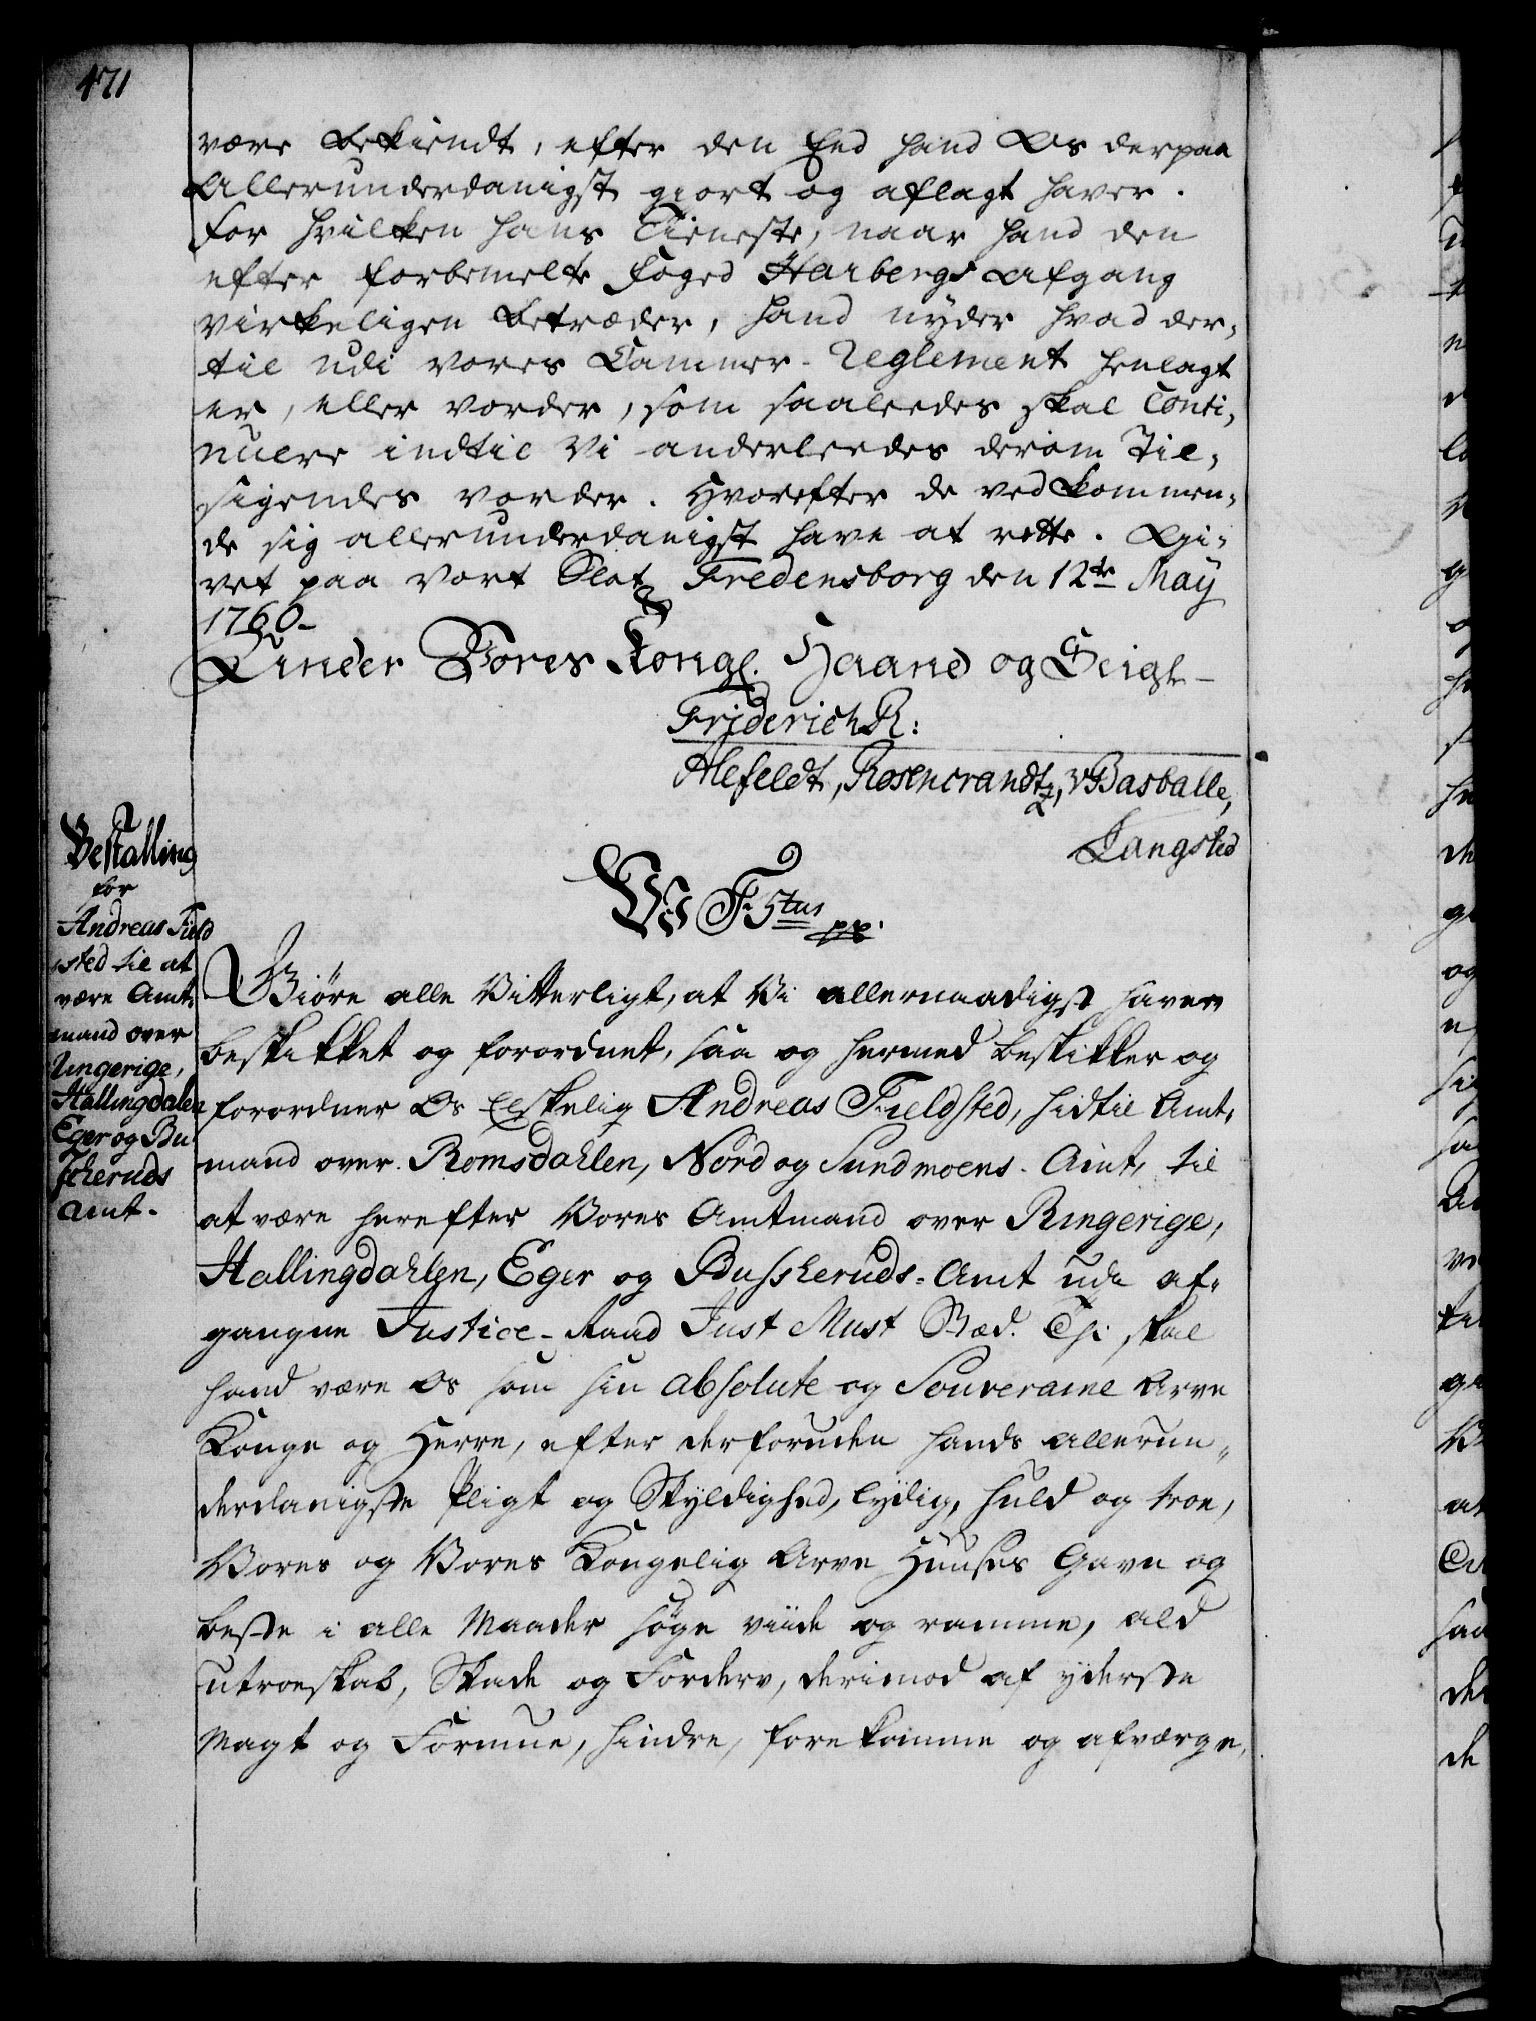 471
være bekiendt, efter den Eed hand Os derpaa
Allerunderdanigst giort og aflagt haver.
For hvilken hans Tieneste, naar hand den
efter forbemelte Foged Harbergs Afgang
virkeligen betræder, hand nyder hvad der,
til udi vores Cammer-Reglement henlagt
er, eller vorder, som saaleedes skal Conti,
nuere indtil Vi anderleedes derom Til,
sigendes vorder. Hvorefter de vedkommen,
de sig allerunderdanigst have at rette. Gi,
vet paa vort Slot Fredensborg den 12te May
1760-
Under Vores Kongl. Haand og Seigl-
Friderich R:
Alefeldt, Rosencrandtz, v Basballe,
Langsted
Bestalling
for
Andreas Field
sted til at
være Amt,
mand over
Ringerige,
Hallingdalen
Eger og Bu
scheruds
Amt.
W F 5tus pp.
Giöre alle Vitterligt, at Vi allernaadigst haver
beskikket og forordnet, saa og hermed beskikker og
forordner Os Elskelig Andreas Fieldsted, hidtil Amt,
mand over Romsdahlen, Nord og Sundmoers-Amt, til
at være herefter Vores Amtmand over Ringerige,
Hallingdahlen, Eger og Busskeruds-Amt udi af,
gangne Justice-Raad Just Must Stæd. Thi skal
hand være Os som sin absolute og Souveraine Arve
Konge og Herre, efter derforuden hands allerun,,
derdanigste Pligt og Skyldighed, lydig, huld og troe,
Vores og Vores Kongelig Arve Huuses Gavn og
beste i alle Maader söge viide og ramme, ald
utroeskab, Skade og Forderv, derimod af yderste
Magt og Formue, hindre, forekomme og afværge,